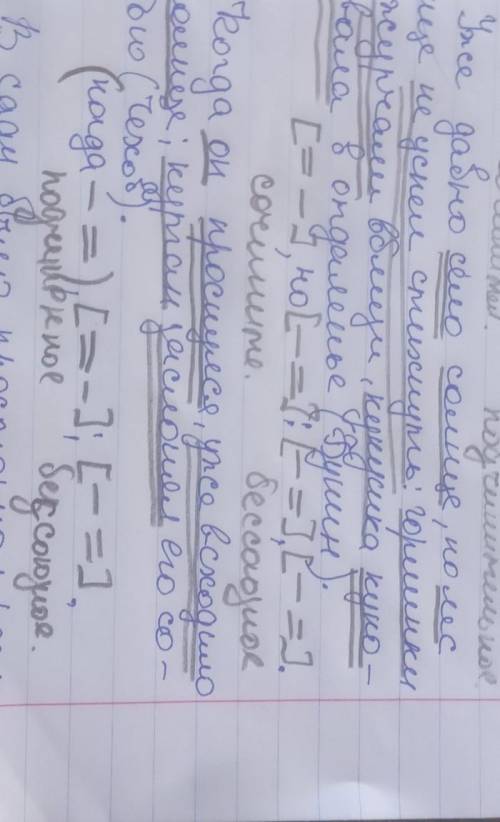 подчинительное
Уже давно село солнце, но лес
ще не успел стихнуть: горлинки
журчали вблизи, кукушка куко-
вала в отдаленье (Бунин).
[= –], но [– =]: [– =], [– =].
сочинит. бессоюзное
Когда он проснулся, уже всходило
солнце; курган заслонял его со-
бою (Чехов).
(когда – =) [= –]; [– =]
подчинительное бессоюзное.
В саду